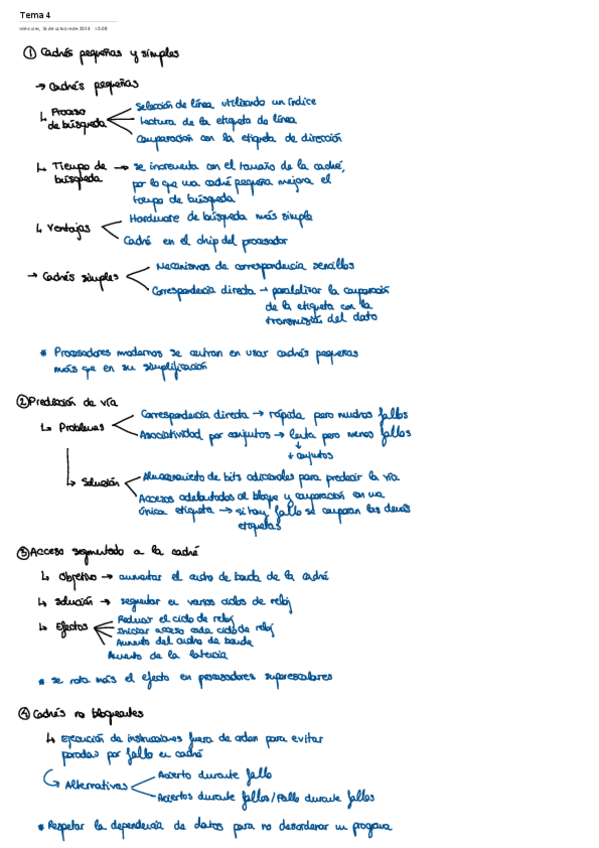 Tema 4
miércoles, 16 de octubre de 2024 10:08
① Cachés pequeñas y simples
→ Cachés pequeñas
↳ Proceso de búsqueda
Selección de línea utilizando un índice
Lectura de la etiqueta de línea
Comparación con la etiqueta de dirección
↳ Tiempo de búsqueda → se incrementa con el tamaño de la caché,
por lo que una caché pequeña mejora el
tiempo de búsqueda
↳ Ventajas
Hardware de búsqueda más simple
Caché en el chip del procesador
→ Cachés simples
Mecanismos de correspondencia sencillos
Correspondencia directa → paralelizar la comparación
de la etiqueta con la
transmisión del dato
* Procesadores modernos se centran en usar cachés pequeñas
más que en su simplificación
② Predicción de vía
↳ Problemas
Correspondencia directa → rápida pero muchos fallos
Asociatividad por conjuntos → lenta pero menos fallos
↓
+ conjuntos
↳ Solución
Almacenamiento de bits adicionales para predecir la vía
Accesos adelantados al bloque y comparación en una
única etiqueta → si hay fallo se comparan las demás
etiquetas
③ Acceso segmentado a la caché
↳ Objetivo → aumentar el ancho de banda de la caché
↳ Solución → segmentar en varios ciclos de reloj
↳ Efectos
Reducir el ciclo de reloj
Iniciar acceso cada ciclo de reloj
Aumento del ancho de banda
Aumento de la latencia
* se nota más el efecto en procesadores superescalares
④ Cachés no bloqueantes
↳ Ejecución de instrucciones fuera de orden para evitar
paradas por fallo en caché
↳ Alternativas
Acierto durante fallo
Aciertos durante fallos/Fallo durante fallos
* Respetar la dependencia de datos para no desordenar un programa